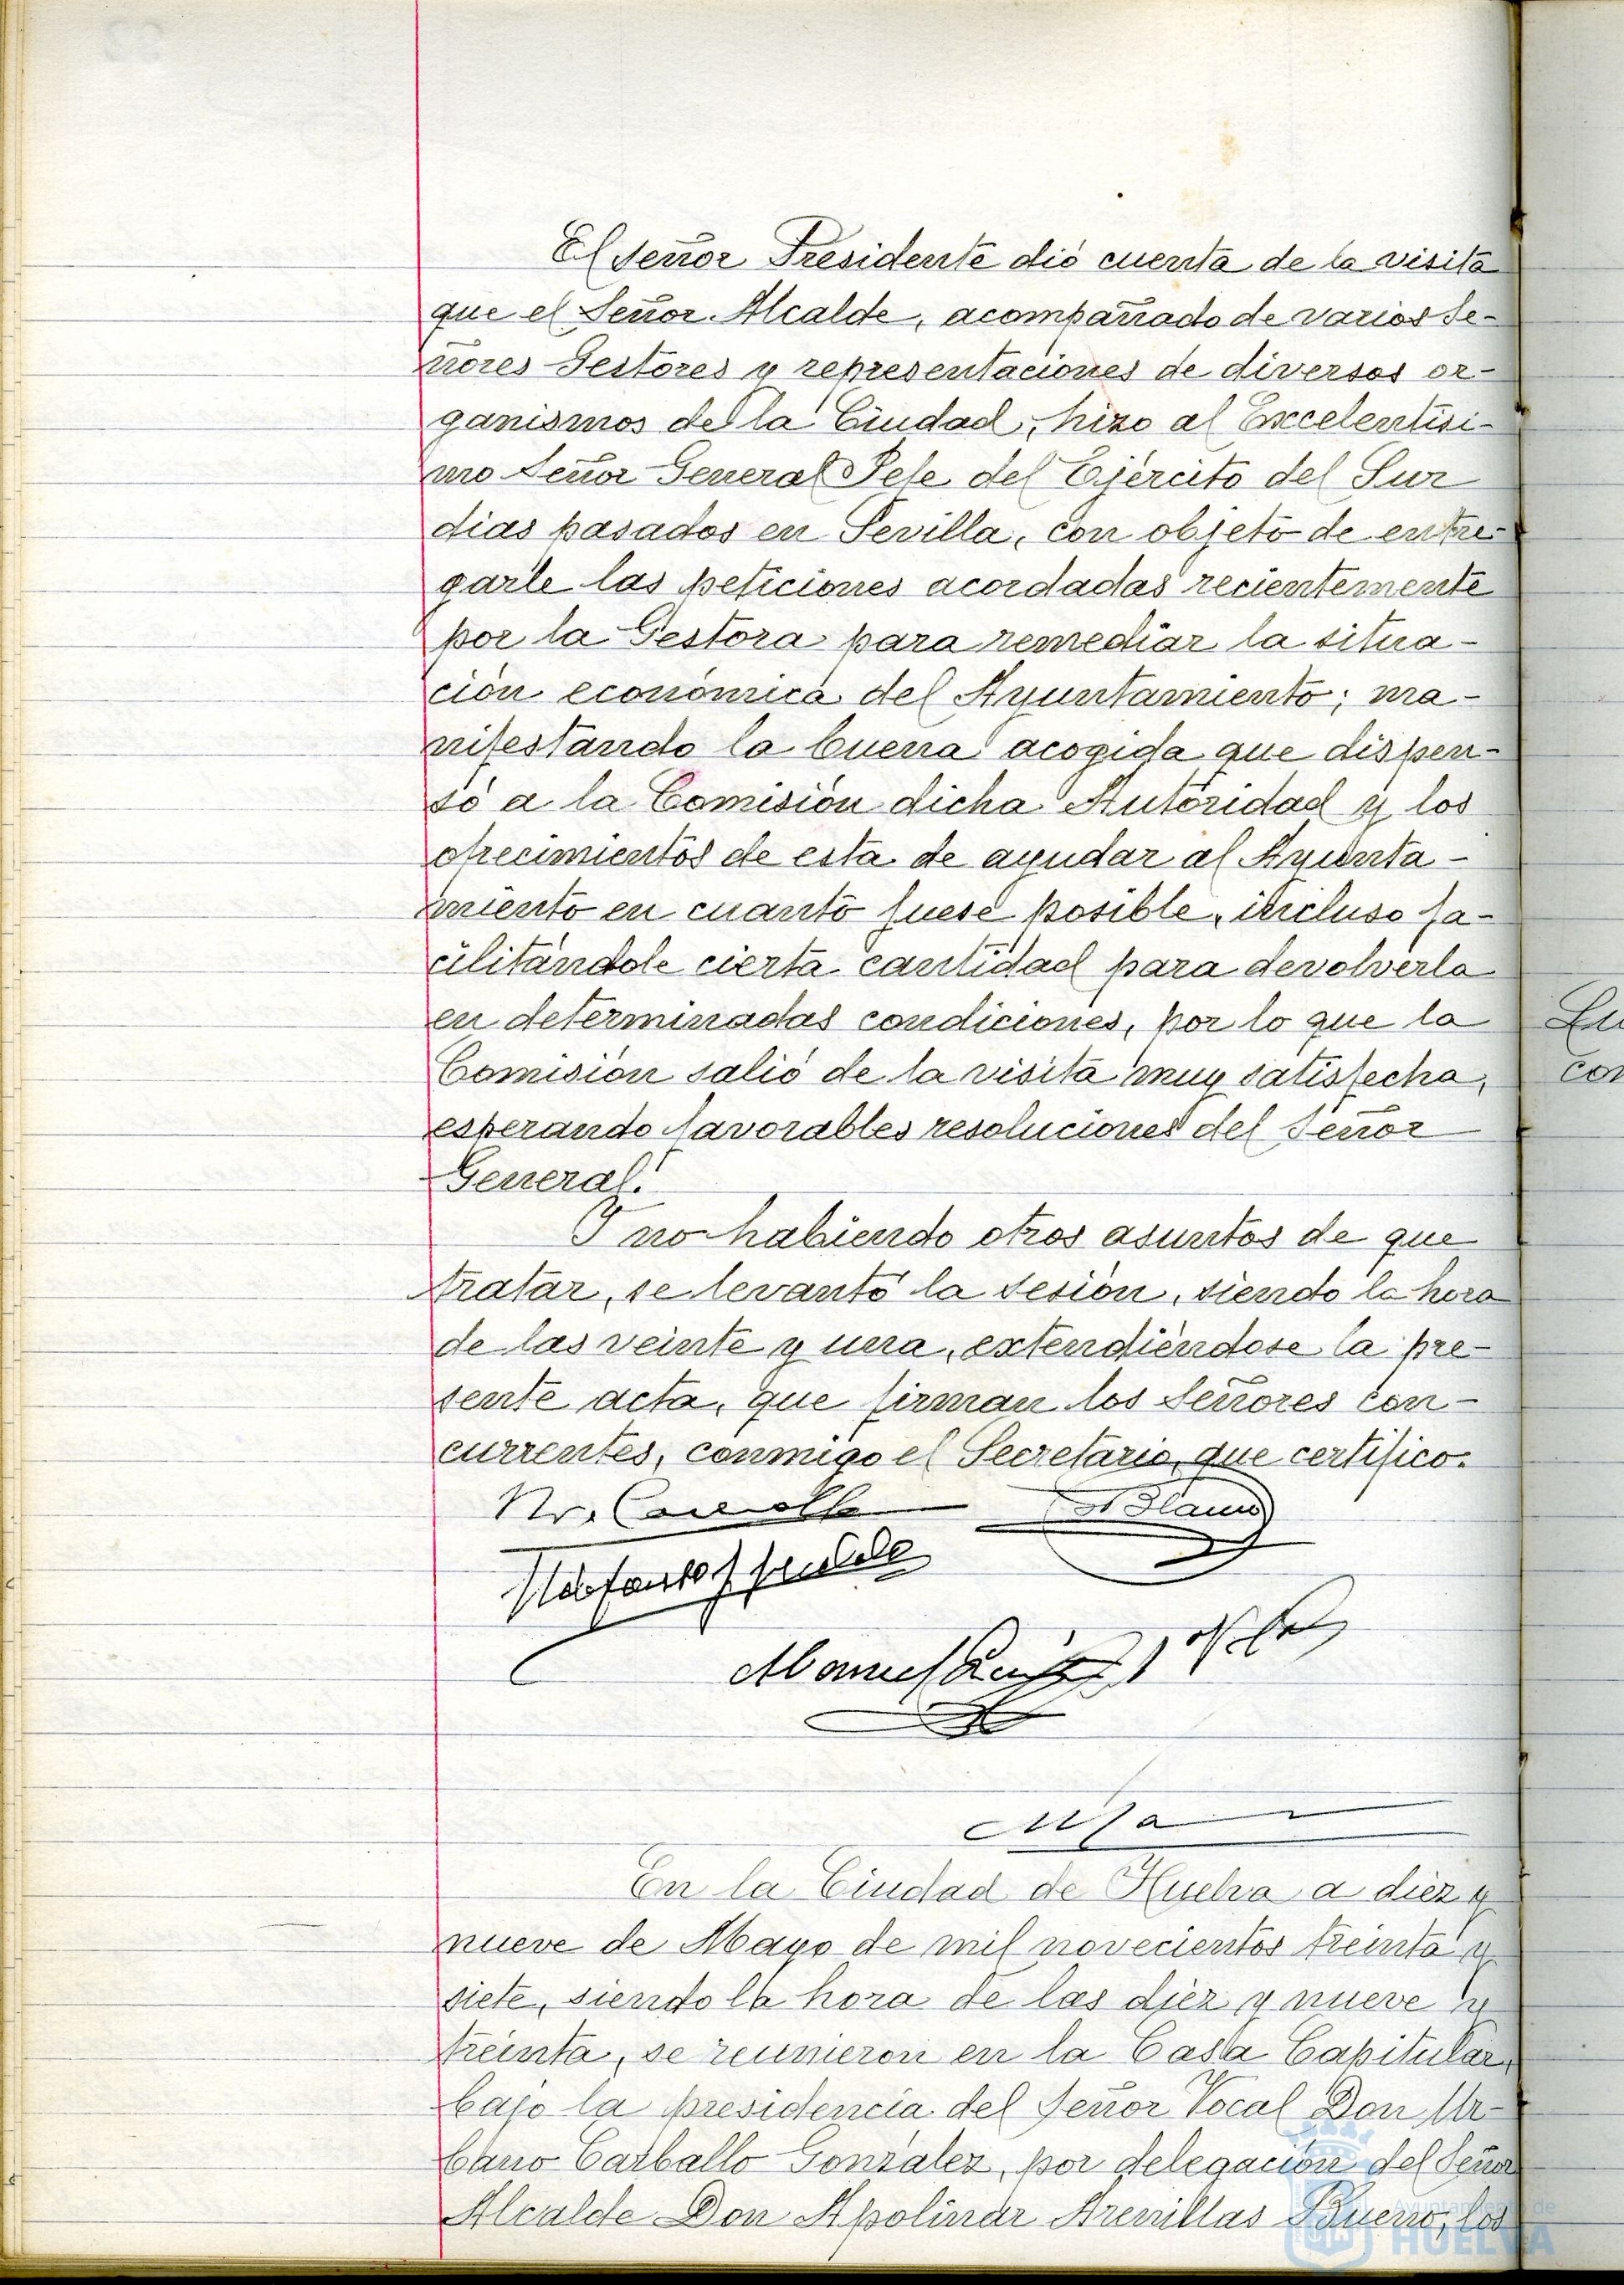 El señor Presidente dió cuenta de la visita
que el Señor Alcalde, acompañado de varios Se-
ñores Gestores y representaciones de diversos or-
ganismos de la Ciudad, hizo al Excelentísi-
mo Señor General Jefe del Ejército del Sur
dias pasados en Sevilla, con objeto de entre-
garle las peticiones acordadas recientemente
por la Gestora para remediar la situa-
ción económica del Ayuntamiento; ma-
nifestando la buena acogida que dispen-
só a la Comisión dicha Autoridad y los
ofrecimientos de esta de ayudar al Ayunta-
miento en cuanto fuese posible, incluso fa-
cilitándole cierta cantidad para devolverla
en determinadas condiciones, por lo que la
Comisión salió de la visita muy satisfecha,
esperando favorables resoluciones del Señor
General.
Y no habiendo otros asuntos de que
tratar, se levantó la sesión, siendo la hora
de las veinte y una, extendiéndose la pre-
sente acta, que firman los Señores con-
currentes, conmigo el Secretario, que certifico.
Blanco
Manuel
En la Ciudad de Huelva a diez y
nueve de Mayo de mil novecientos treinta y
siete, siendo la hora de las diez y nueve y
treinta, se reunieron en la Casa Capitular,
bajo la presidencia del Señor Vocal Don Ur-
bano Carballo Gonzalez, por delegación del Señor
Alcalde Don Apolinar Arenillas Bueno, los
Ayuntamiento de
HUELVA